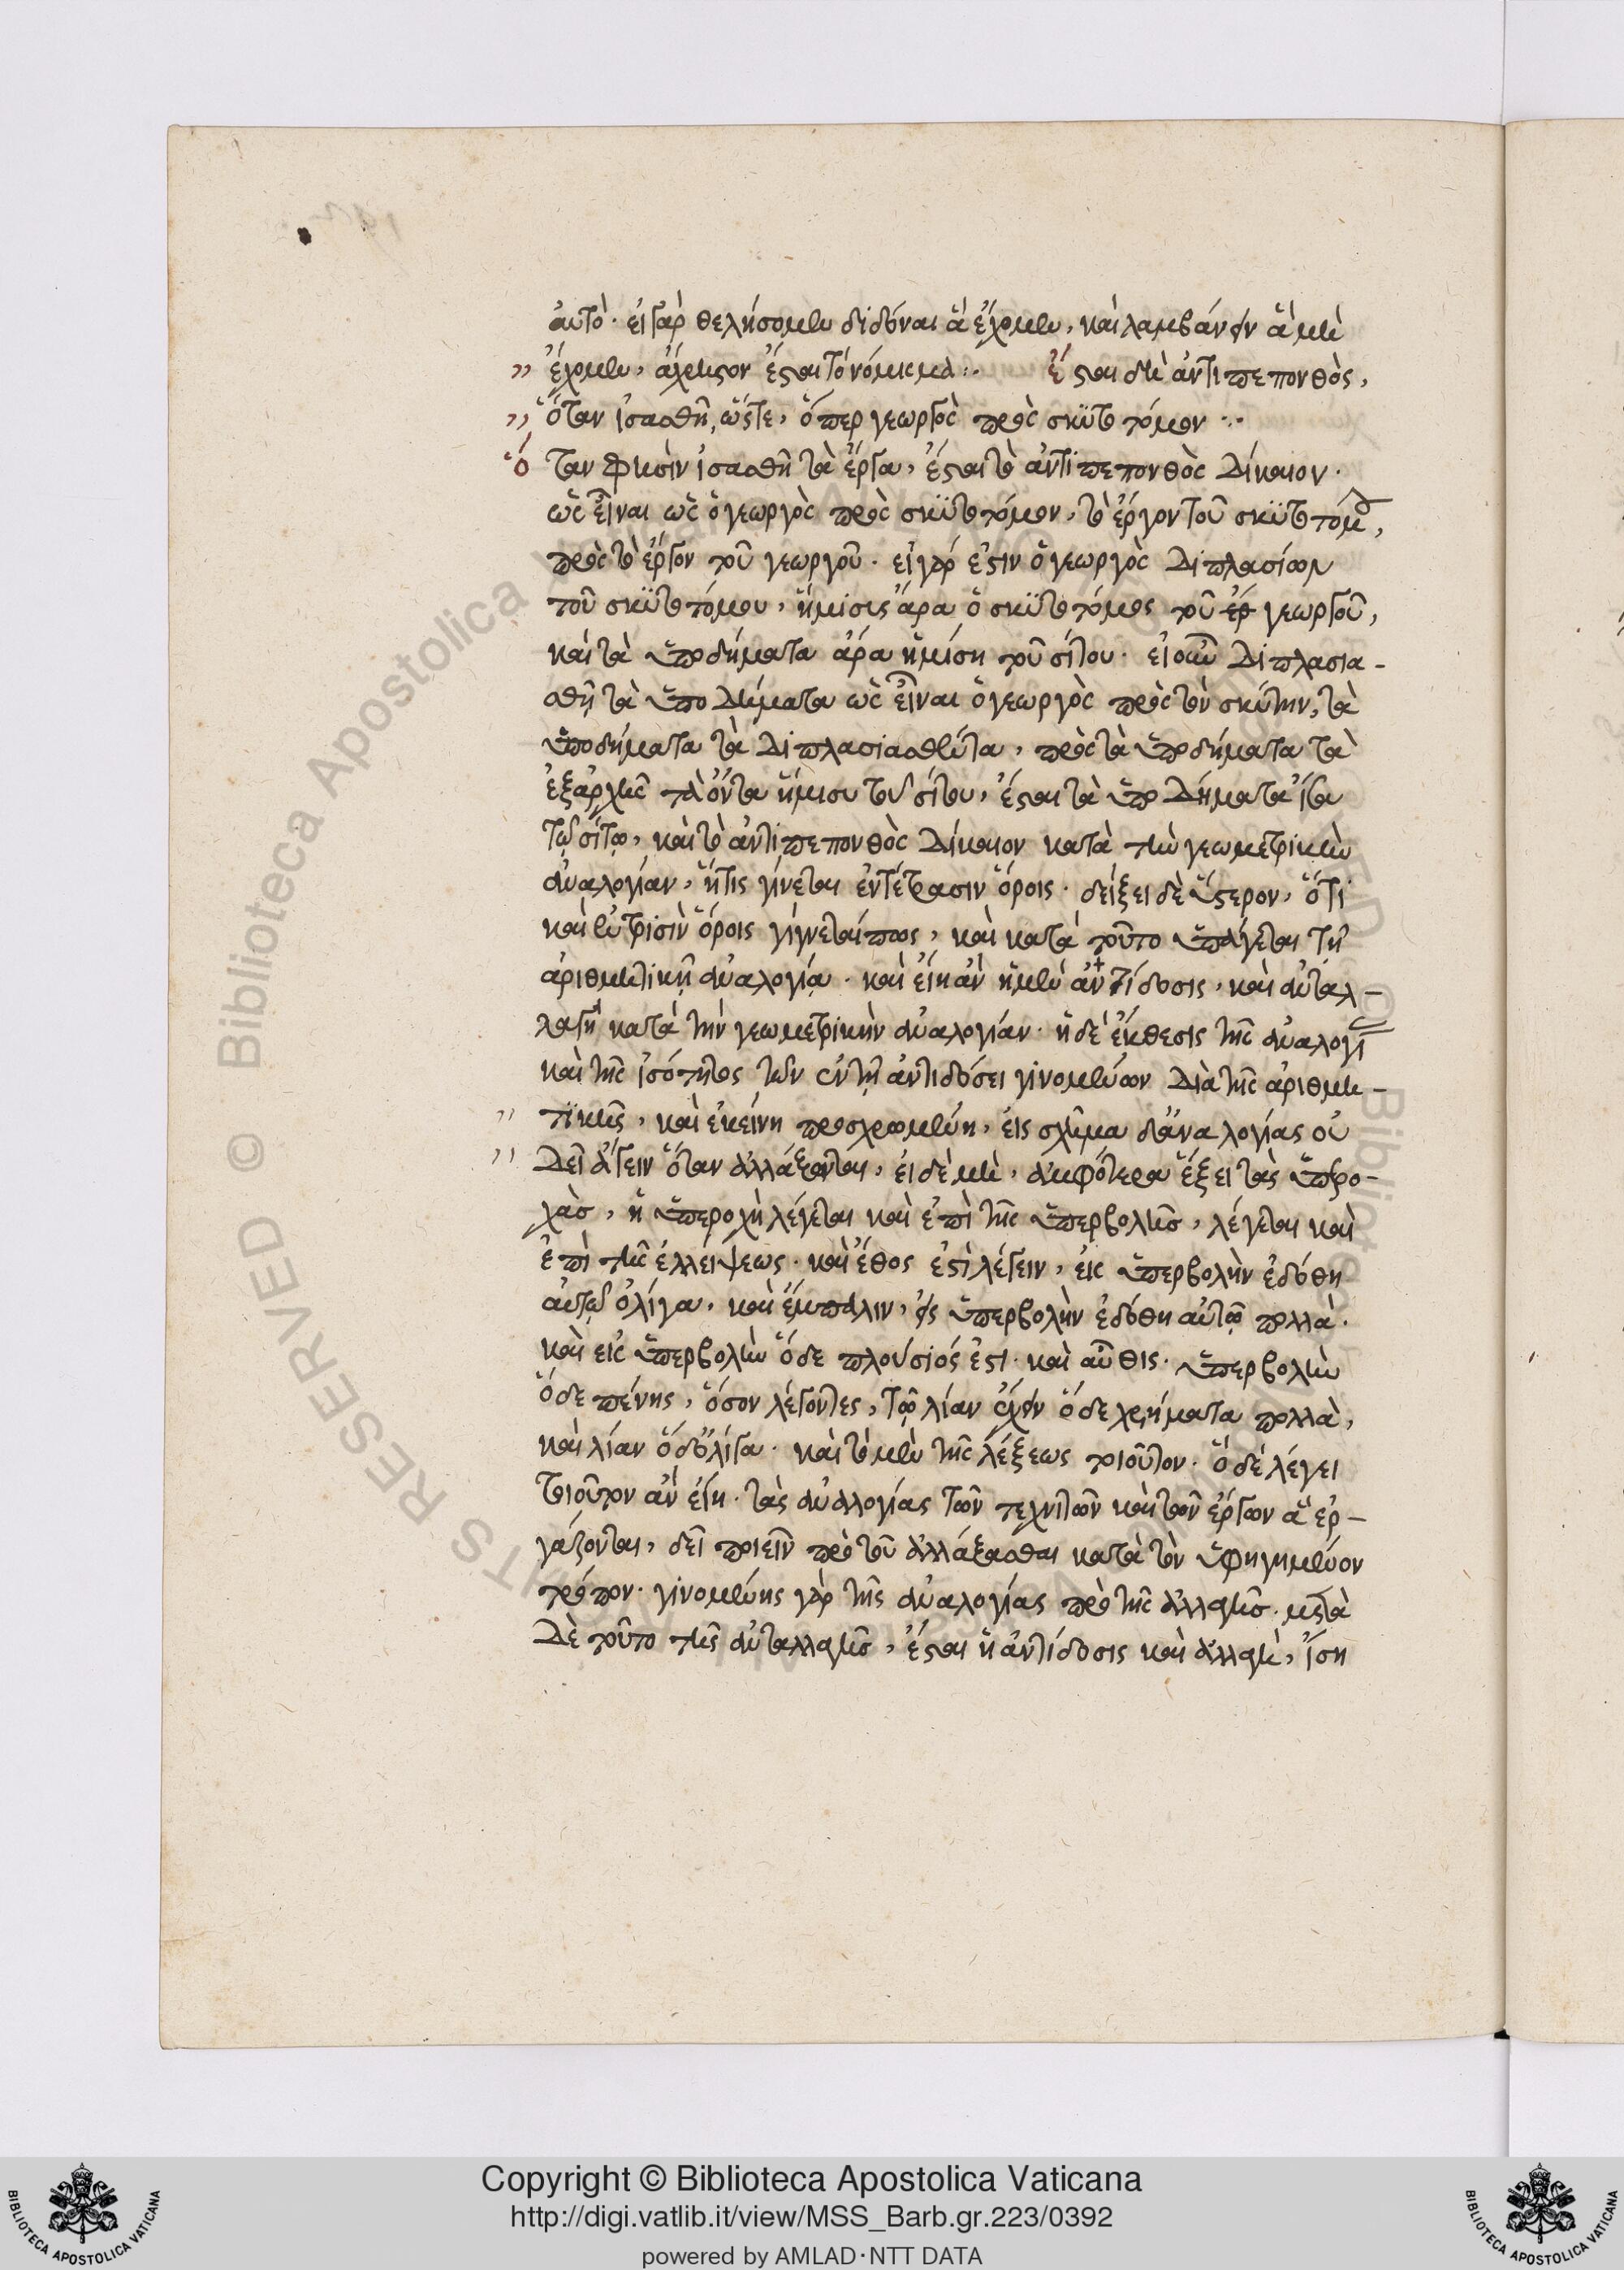 αὐτό· εἰ γὰρ θελήσομεν διδόναι ἃ ἔχομεν, καὶ λαμβάνειν ἃ μὴ
ἔχομεν, ἄχρηστον ἔσται τὸ νόμισμα:· ἔσται δὴ ἀντιπεπονθὸς,
ὅταν ἰσασθῆ, ὥστε, ὅπερ γεωργὸς πρὸς σκϋτοτόμον:·
ὅταν φησὶν ἰσασθῆ τὰ ἔργα, ἔσται τὸ ἀντιπεπονθὸς δίκαιον·
ὡς εἶναι ὡς ὁ γεωργὸς πρὸς σκϋτοτόμον, τὸ ἔργον τοῦ σκϋτοτόμου,
πρὸς τὸ ἔργον τοῦ γεωργοῦ· εἰ γάρ ἐστιν ὁ γεωργὸς διπλασίων
τοῦ σκϋτοτόμου, ἥμισυς ἄρα ὁ σκϋτοτόμος τοῦ ἐρ γεωργοῦ,
καὶ τὰ ὑποδήματα ἄρα ἡμίση τοῦ σίτου· εἰ οὖν διπλασια-
σθῆ τὰ ὑποδήματα ὡς εἶναι ὁ γεωργὸς πρὸς τὸν σκύτην, τὰ
ὑποδήματα τὰ διπλασιασθέντα, πρὸς τὰ ὑποδήματα τὰ
ἐξαρχῆς τὰ ὄντα ἥμισυ τοῦ σίτου, ἔσται τὰ ὑποδήματα ἴσα
τῷ σίτῳ, καὶ τὸ ἀντιπεπονθὸς δίκαιον κατὰ τὴν γεωμετρικὴν
ἀναλογίαν, ἥτις γίνεται ἐν τέτρασιν ὅροις· δείξει δὲ ὕστερον, ὅτι
καὶ ἐν τρισὶν ὅροις γίγνεταί πως, καὶ κατὰ τοῦτο ὑπάγεται τῇ
ἀριθμητικῇ ἀναλογίᾳ· καὶ εἴη ἂν ἡ μὲν ἀντίδοσις, καὶ ἀνταλ-
λαγὴ κατὰ τὴν γεωμετρικὴν ἀναλογίαν· ἡ δὲ ἔκθεσις τῆς ἀναλογίας
καὶ τῆς ἰσότητος τῶν ἐν τῇ ἀντιδόσει γινομένων διὰ τῆς ἀριθμη-
τϊκῆς, καὶ ἐκείνη προσχρωμένη, εἰς σχῆμα δ' ἀναλογίας οὐ
δεῖ ἄγειν ὅταν ἀλλάξωνται, εἰ δὲ μὴ, ἀμφότερα ἕξει τὰς ὑπερο-
χὰς, ἡ ὑπεροχὴ λέγεται καὶ ἐπὶ τῆς ὑπερβολῆς, λέγεται καὶ
ἐπὶ τῆς ἐλλείψεως· καὶ ἔθος ἐστὶ λέγειν, εἰς ὑπερβολὴν ἐδόθη
αὐτῷ ὀλίγα, καὶ ἔμπαλιν, εἰς ὑπερβολὴν ἐδόθη αὐτῷ πολλά·
καὶ εἰς ὑπερβολὴν ὅδε πλούσιός ἐστι· καὶ αὖθις· ὑπερβολὴν
ὅδε πένης, ὅσον λέγοντες, τῷ λίαν ἔχειν ὅδε χρήματα πολλὰ,
καὶ λίαν ὅδ' ὀλίγα· καὶ τὸ μὲν τῆς λέξεως τοιοῦτον· ὃ δὲ λέγει
τοιοῦτον ἂν εἴη· τὰς ἀναλογίας τῶν τεχνιτῶν καὶ τῶν ἔργων ἃ ἐρ-
γάζονται, δεῖ ποιεῖν πρὸ τοῦ ἀλλάξασθαι κατὰ τὸν ὑφηγημένον
τρόπον· γινομένης γὰρ τῆς ἀναλογίας πρὸ τῆς ἀλλαγῆς· μετὰ
δὲ τοῦτο τῆς ἀνταλλαγῆς, ἔσται ἡ ἀντίδοσις καὶ ἀλλαγὴ, ἴση
Copyright © Biblioteca Apostolica Vaticana
http://digi.vatlib.it/view/MSS_Barb.gr.223/0392
powered by AMLAD·NTT DATA